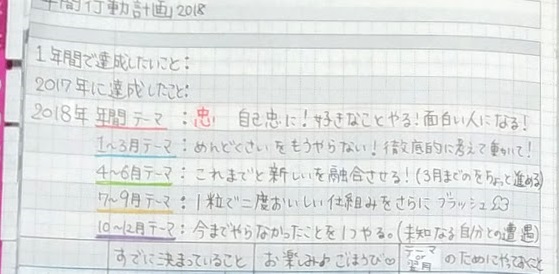 年間行動計画 2018
1年間で達成したいこと:
2017年に達成したこと:
2018年 年間テーマ : 忠 自己忠に! 好きなことやる! 面白い人になる!
1~3月テーマ : めんどくさいをもうやらない! 徹底的に考えて動かいて!
4~6月テーマ : これまでと新しいを融合させる! (3月までのをもって進める)
7~9月テーマ : 1粒で二度おいしい仕組みをさらにブラッシュ
10~12月テーマ : 今までやらなかったことを1つやる。(未知なる自分との遭遇)
すでに決まっていること お楽しみ♪ごほうび♡ テーマ or 翌月 のためにやっておくこと